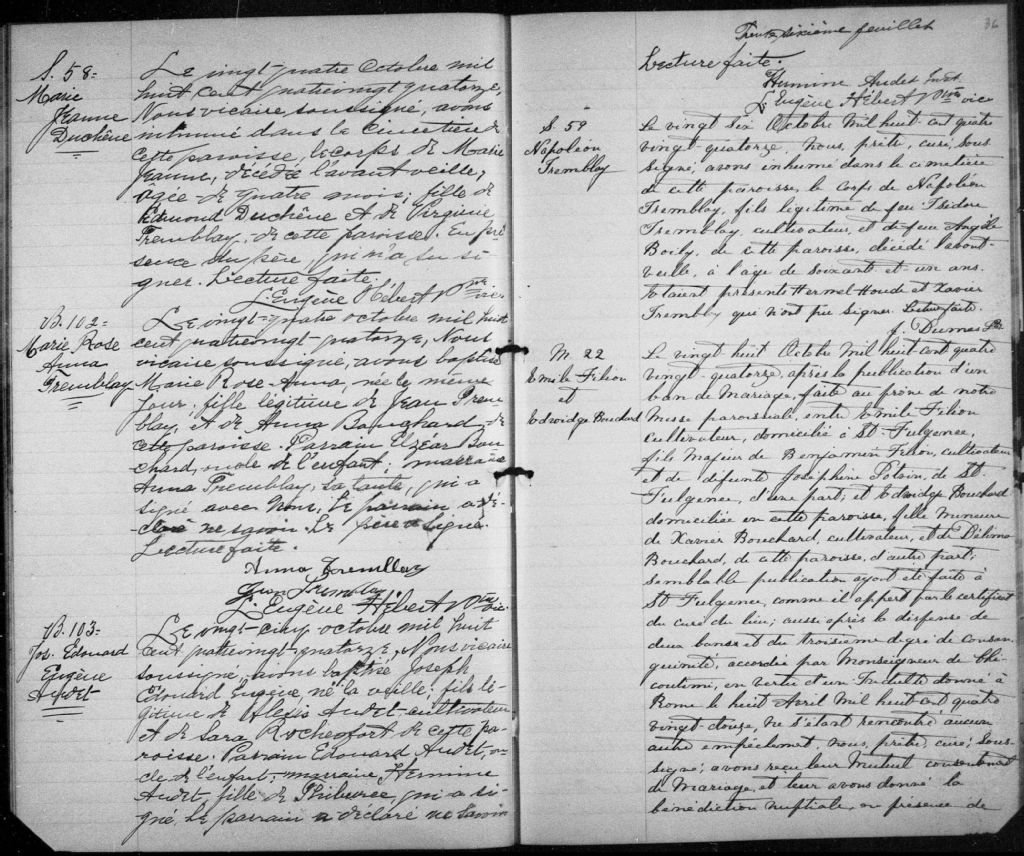 S. 58=
Marie
Jeanne
Duchêne
Le vingt-quatre Octobre mil
huit cent quatrevingt quatorze,
Nous vicaire soussigné, avons
inhumé dans le Cimetière de
cette paroisse, le corps de Marie
Jeanne, décédée l'avant veille,
agée de quatre mois, fille de
Edmond Duchêne et de Virginie
Tremblay, de cette paroisse. En pré-
sence du père, qui n'a su si-
gner. Lecture faite.
L. Eugène Hébert Ptre vic.
B. 102=
Marie Rose
Anna
Tremblay
Le vingt-quatre octobre mil huit
cent quatrevingt-quatorze, Nous
vicaire soussigné, avons baptisé
Marie Rose Anna, née le même
jour, fille légitime de Jean Trem
blay, et de Anna Bouchard, de
cette paroisse. Parrain Elzéar Bou
chard, oncle de l'enfant; marraine
Anna Tremblay, sa tante, qui a
signé avec Nous, le parrain a dé-
claré ne savoir. Le père a signé.
Lecture faite.
Anna Tremblay
Jean Tremblay
L. Eugène Hébert Ptre vic.
B. 103=
Jos. Edouard
Eugène
Audet
Le vingt-cinq octobre mil huit
cent quatrevingt-quatorze, Nous vicaire
soussigné, avons baptisé Joseph
Edouard Eugène, né la veille, fils lé-
gitime de Alexis Audet, cultivateur
et de Sara Rochefort de cette pa-
roisse. Parrain Edouard Audet, on-
cle de l'enfant; marraine Hermine
Audet, fille de Philburée, qui a si-
gné. Le parrain a déclaré ne savoir
36
Trente sixième feuillet
Lecture faite.
Hermine Audet
L. Eugène Hébert Ptre vic
S. 59
Napoléon
Tremblay
Le vingt six Octobre Mil huit cent quatre
vingt-quatorze, Nous, prêtre, curé, sous
signé, avons inhumé dans le cimetière
de cette paroisse, le corps de Napoléon
Tremblay, fils légitime de feu Isidore
Tremblay, cultivateur, et de feue Angèle
Boily, de cette paroisse, décédé l'avant-
veille, à l'âge de soixante et un ans.
Etaient présents Hermel Houde et Xavier
Tremblay qui n'ont pu signer. Lecture faite.
J. Dumas Ptre
M. 22
Emile Filion
et
Edwidge Bouchard
Le vingt huit Octobre Mil huit cent quatre
vingt-quatorze, après la publication d'un
ban de Mariage, faite au prône de notre
Messe paroissiale, entre Emile Filion
Cultivateur, domicilié à St-Fulgence,
fils Majeur de Benjamin Filion, cultivateur
et de défunte Josephine Potvin, de St
Fulgence, d'une part; et Edwidge Bouchard
domiciliée en cette paroisse, fille mineure
de Xavier Bouchard, cultivateur, et de Délima
Bouchard, de cette paroisse, d'autre part;
semblable publication ayant été faite à
St Fulgence, comme il appert par le certificat
du curé du lieu; aussi après la dispense de
deux bans et du troisième degré de consan
guinité, accordée par Monseigneur de Chi-
coutimi, en vertu d'un Indult donné à
Rome le huit Avril Mil huit cent quatre
vingt douze, ne s'étant rencontré aucun
autre empêchement, Nous, prêtre, curé, sous-
signé, avons reçu leur Mutuel consentement
de Mariage, et leur avons donné la
bénédiction nuptiale, en présence de